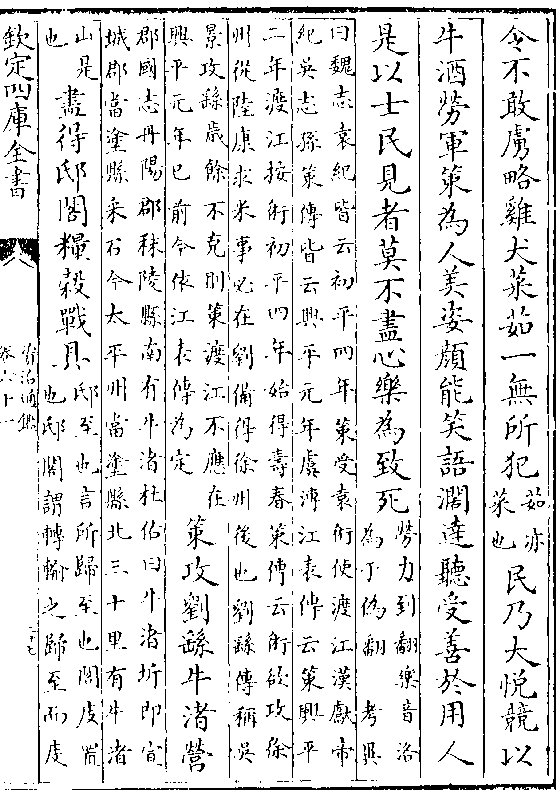 令不敢虜略雞犬菜茹一無所犯茹亦
菜也民乃大悅競以
牛酒勞軍策為人美姿顔能笑語濶達聽受善於用人
是以士民見者莫不盡心樂為致死勞力到翻樂音洛
為于偽翻 考異
曰魏志袁紀皆云初平四年策受袁術使渡江漢獻帝
紀吳志孫策傳皆云興平元年虞溥江表傳云策興平
二年渡江按術初平四年始得壽春策傳云術欲攻徐
州從陸康求米事必在劉備得徐州後也劉繇傳稱吳
景攻繇歲餘不克則策渡江不應在
興平元年已前今依江表傳為定策攻劉繇牛渚營
郡國志丹陽郡秣陵縣南有牛渚杜佑曰牛渚圻即宣
城郡當塗縣采石今太平州當塗縣北三十里有牛渚
山是
也盡得邸閣糧穀戰具邸至也言所歸至也閣庋置
也邸閣謂轉輸之歸至而庋
欽定四庫全書
資治通鑑
卷六十一